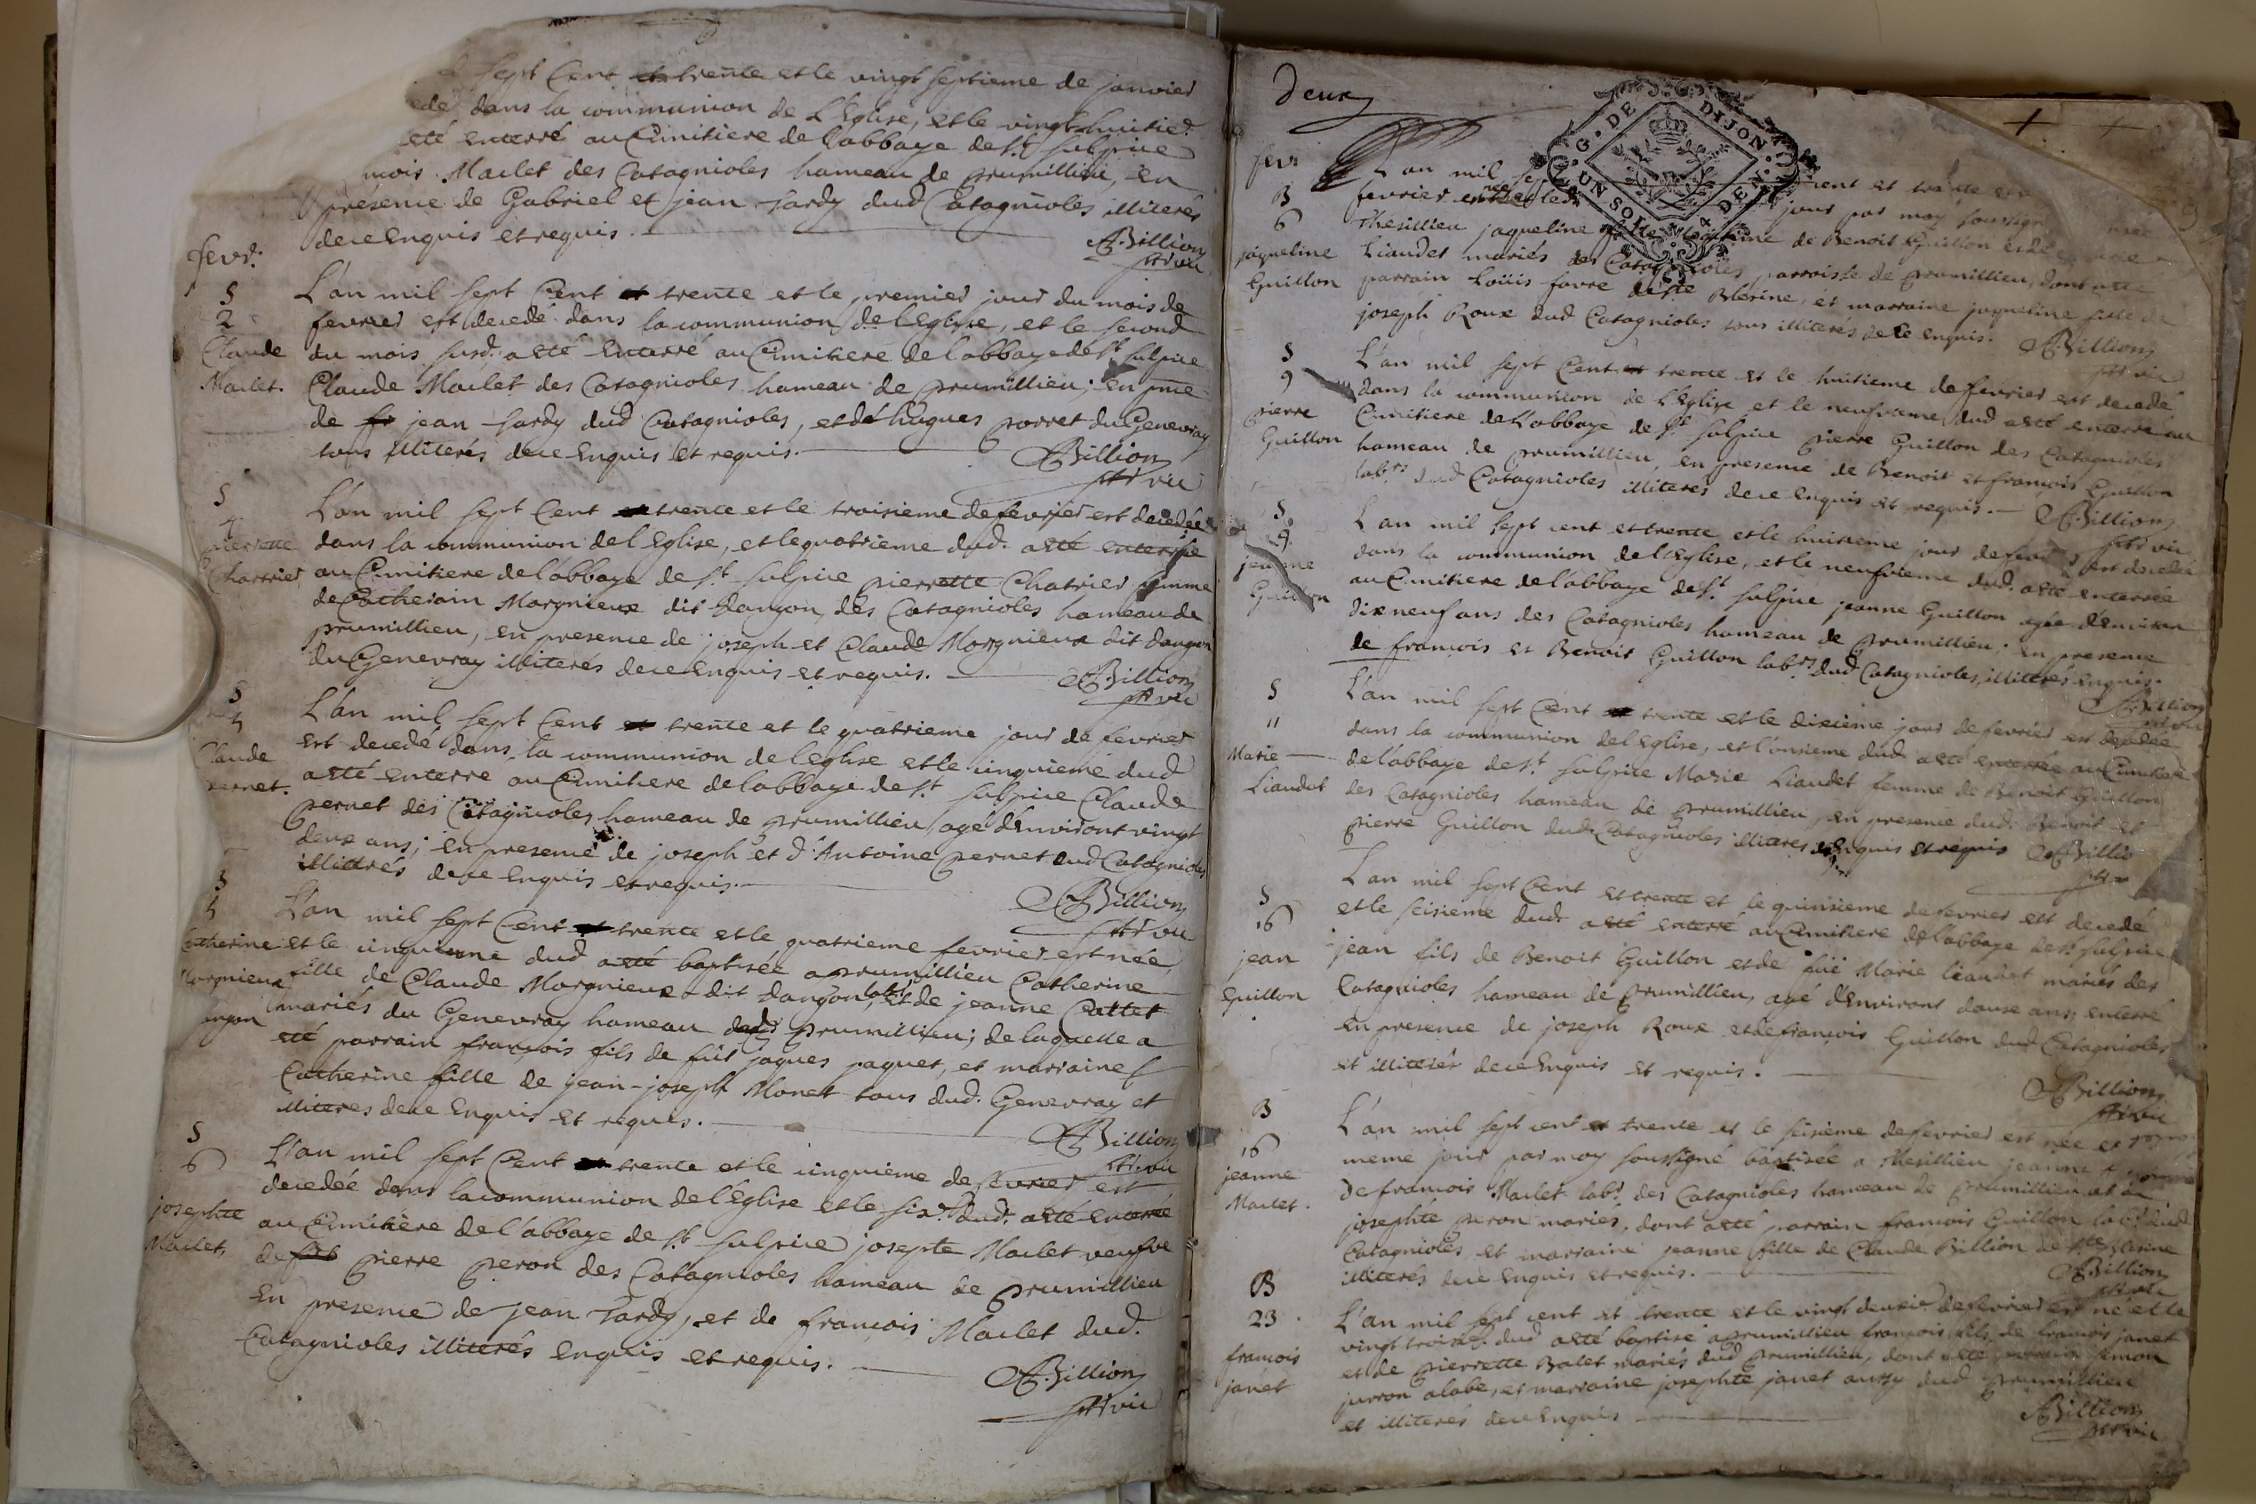 sept Cent trente et le vingt septieme de janvier
cedé dans la communion de L'Eglise, et le vingt huitie.
eté enterré au Cimitiere de l'abbaye de St. sulpice
ncois Maclet des Catagnioles hameau de prumillieu, en
présence de Gabriel et jean Tardy dud Catagnioles illiterés
de ce Enquis et requis.
Billion
fevr.
L'an mil sept Cent trente et le premier jour du mois de
fevrier est decedé dans la communion de l'Eglise, et le second
du mois susd. a eté Enterré au Cimitiere de l'abbaye de St. sulpice
Claude Maclet des Catagnioles hameau de prumillieu; en pnce
de jean Tardy dud Catagnioles, et de hugues porret du Genevray
tous illiterés de ce Enquis et requis.
Billion
S
2
Claude
Maclet.
L'an mil sept Cent trente et le troisieme de fevrier est decedée
dans la communion de l'Eglise, et le quatrieme dud. a eté enterrée
au Cimitiere de l'abbaye de St. sulpice pierrette Chatrier femme
de Catherain Morgnieux dit dangon des Catagnioles hameau de
prumillieu, en presence de joseph et Claude Morgnieux dit dangon
du Genevray illiterés de ce Enquis et requis.
Billion
S
4
pierrette
Chartrier
L'an mil sept Cent trente et le quatrieme jour de fevrier
est decedé dans la communion de l'eglise et le cinquieme dud
a eté enterré au Cimitiere de l'abbaye de St. sulpice Claude
pernet des Catagnioles hameau de prumillieu, agé d'Environt vingt
deux ans; en presence de joseph et d'Antoine pernet dud Catagnioles
illiterés de ce Enquis et requis.
Billion
S
5
Claude
pernet.
L'an mil sept Cent trente et le quatrieme fevrier est née,
et le cinquieme dud a eté baptisée a prumillieu Catherine
fille de Claude Morgnieux dit dangon labr. et de jeanne Cattet
mariés du Genevray hameau dud prumillieu; de laquelle a
eté parrain francois fils de fût jaques paquet, et marraine
Catherine fille de jean-joseph Monet tous dud. Genevray et
illiteres de ce Enquis et requis.
Billion
5
Catherine
Morgnieux
L'an mil sept Cent trente et le cinquieme de fevrier est
decedée dans la communion de l'Eglise et le six. dud. a eté enterré
au Cimitière de l'abbaye de St. sulpice josepte Maclet veufve
de pierre peron des Catagnioles hameau de prumillieu
En presence de jean Tardy, et de francois Maclet dud.
Catagnioles illiterés enquis et requis.
Billion
S
6
josephte
Maclet,
deux
G. DE DIJON
UN SOL 4 DEN.
fevr
B
6
jaqueline
Guillon
L'an mil sep cent et trente et
fevrier est née et le jour par moy soussigné
Thesillieu jaqueline fille de Benoit Guillon et de
Liaudet mariés des Catagnioles, parroisse de prumillieu, dont a eté
parrain Loüis favre de Ste Blesine, et marraine jaqueline fille de
joseph Roux dud Catagnioles tous illiterés de ce enquis.
Billion
S
9
pierre
Guillon
L'an mil sept Cent trente et le huitieme de fevrier est decedé
dans la communion de L'Eglise et le neufvieme dud a eté enterré au
Cimitiere de l'abbaye de St. sulpice pierre Guillon des Catagnioles
hameau de prumillieu, en presence de Benoit et françois Guillon
labrs. dud Catagnioles illiteres de ce enquis et requis.
Billion
S.
9.
jeanne
Guillon
L'an mil sept cent et trente et le huitieme jour de fevrier est decedée
dans la communion de l'Eglise, et le neufvieme dud. a eté enterrée
au Cimitiere de l'abbaye de St. sulpice jeanne Guillon agée d'Environ
dixneuf ans des Catagnioles hameau de prumillieu. En presence
de françois et Benoit Guillon labrs dud Catagnioles, illiterés enquis.
Billion
S
11
Marie
Liaudet
L'an mil sept Cent trente et le dixieme jour de fevrier est decedée
dans la communion de l'Eglise, et l'onsieme dud a eté enterrée au Cimitiere
de l'abbaye de St. sulpice Marie Liaudet femme de Benoit Guillon
des Catagnioles hameau de prumillieu, en presence dud. Benoit et
pierre Guillon dud. Catagnioles illiteres enquis et requis
Billio
S
16
jean
Guillon
L'an mil sept Cent et trente et le quinsieme de fevrier est decedé
et le seisieme dud. a eté enterré au Cimitiere de l'abbaye de St. sulpice
jean fils de Benoit Guillon et de fuë Marie liaudet mariés des
Catagnioles hameau de prumillieu, agé d'Environt douse ans, enterré
En presence de joseph Roux et de françois Guillon dud Catagnioles
et illiterés de ce Enquis et requis.
Billion
B
16
jeanne
Maclet.
L'an mil sept cent trente et le seisieme de fevrier est née et
meme jour par moy soussigné baptisée a Thesillieu jeanne
de francois Maclet labr. des Catagnioles hameau de prumillieu et de
josephte peron mariés, dont a eté parrain francois Guillon labr. dud
Catagnioles, et marraine jeanne fille de Claude Billion de Ste Blesine
illiterés de ce Enquis et requis.
Billion
B
23
francois
janet
L'an mil sept cent et trente et le vingt deuxie. de fevrier est né et le
vingt troisie. dud a eté baptisé a prumillieu francois fils de francois janet
et de pierrette Balet mariés dud prumillieu, dont a eté parrain simon
et marraine josephte janet aussy dud prumillieu
et illiterés de ce Enquis
Billion